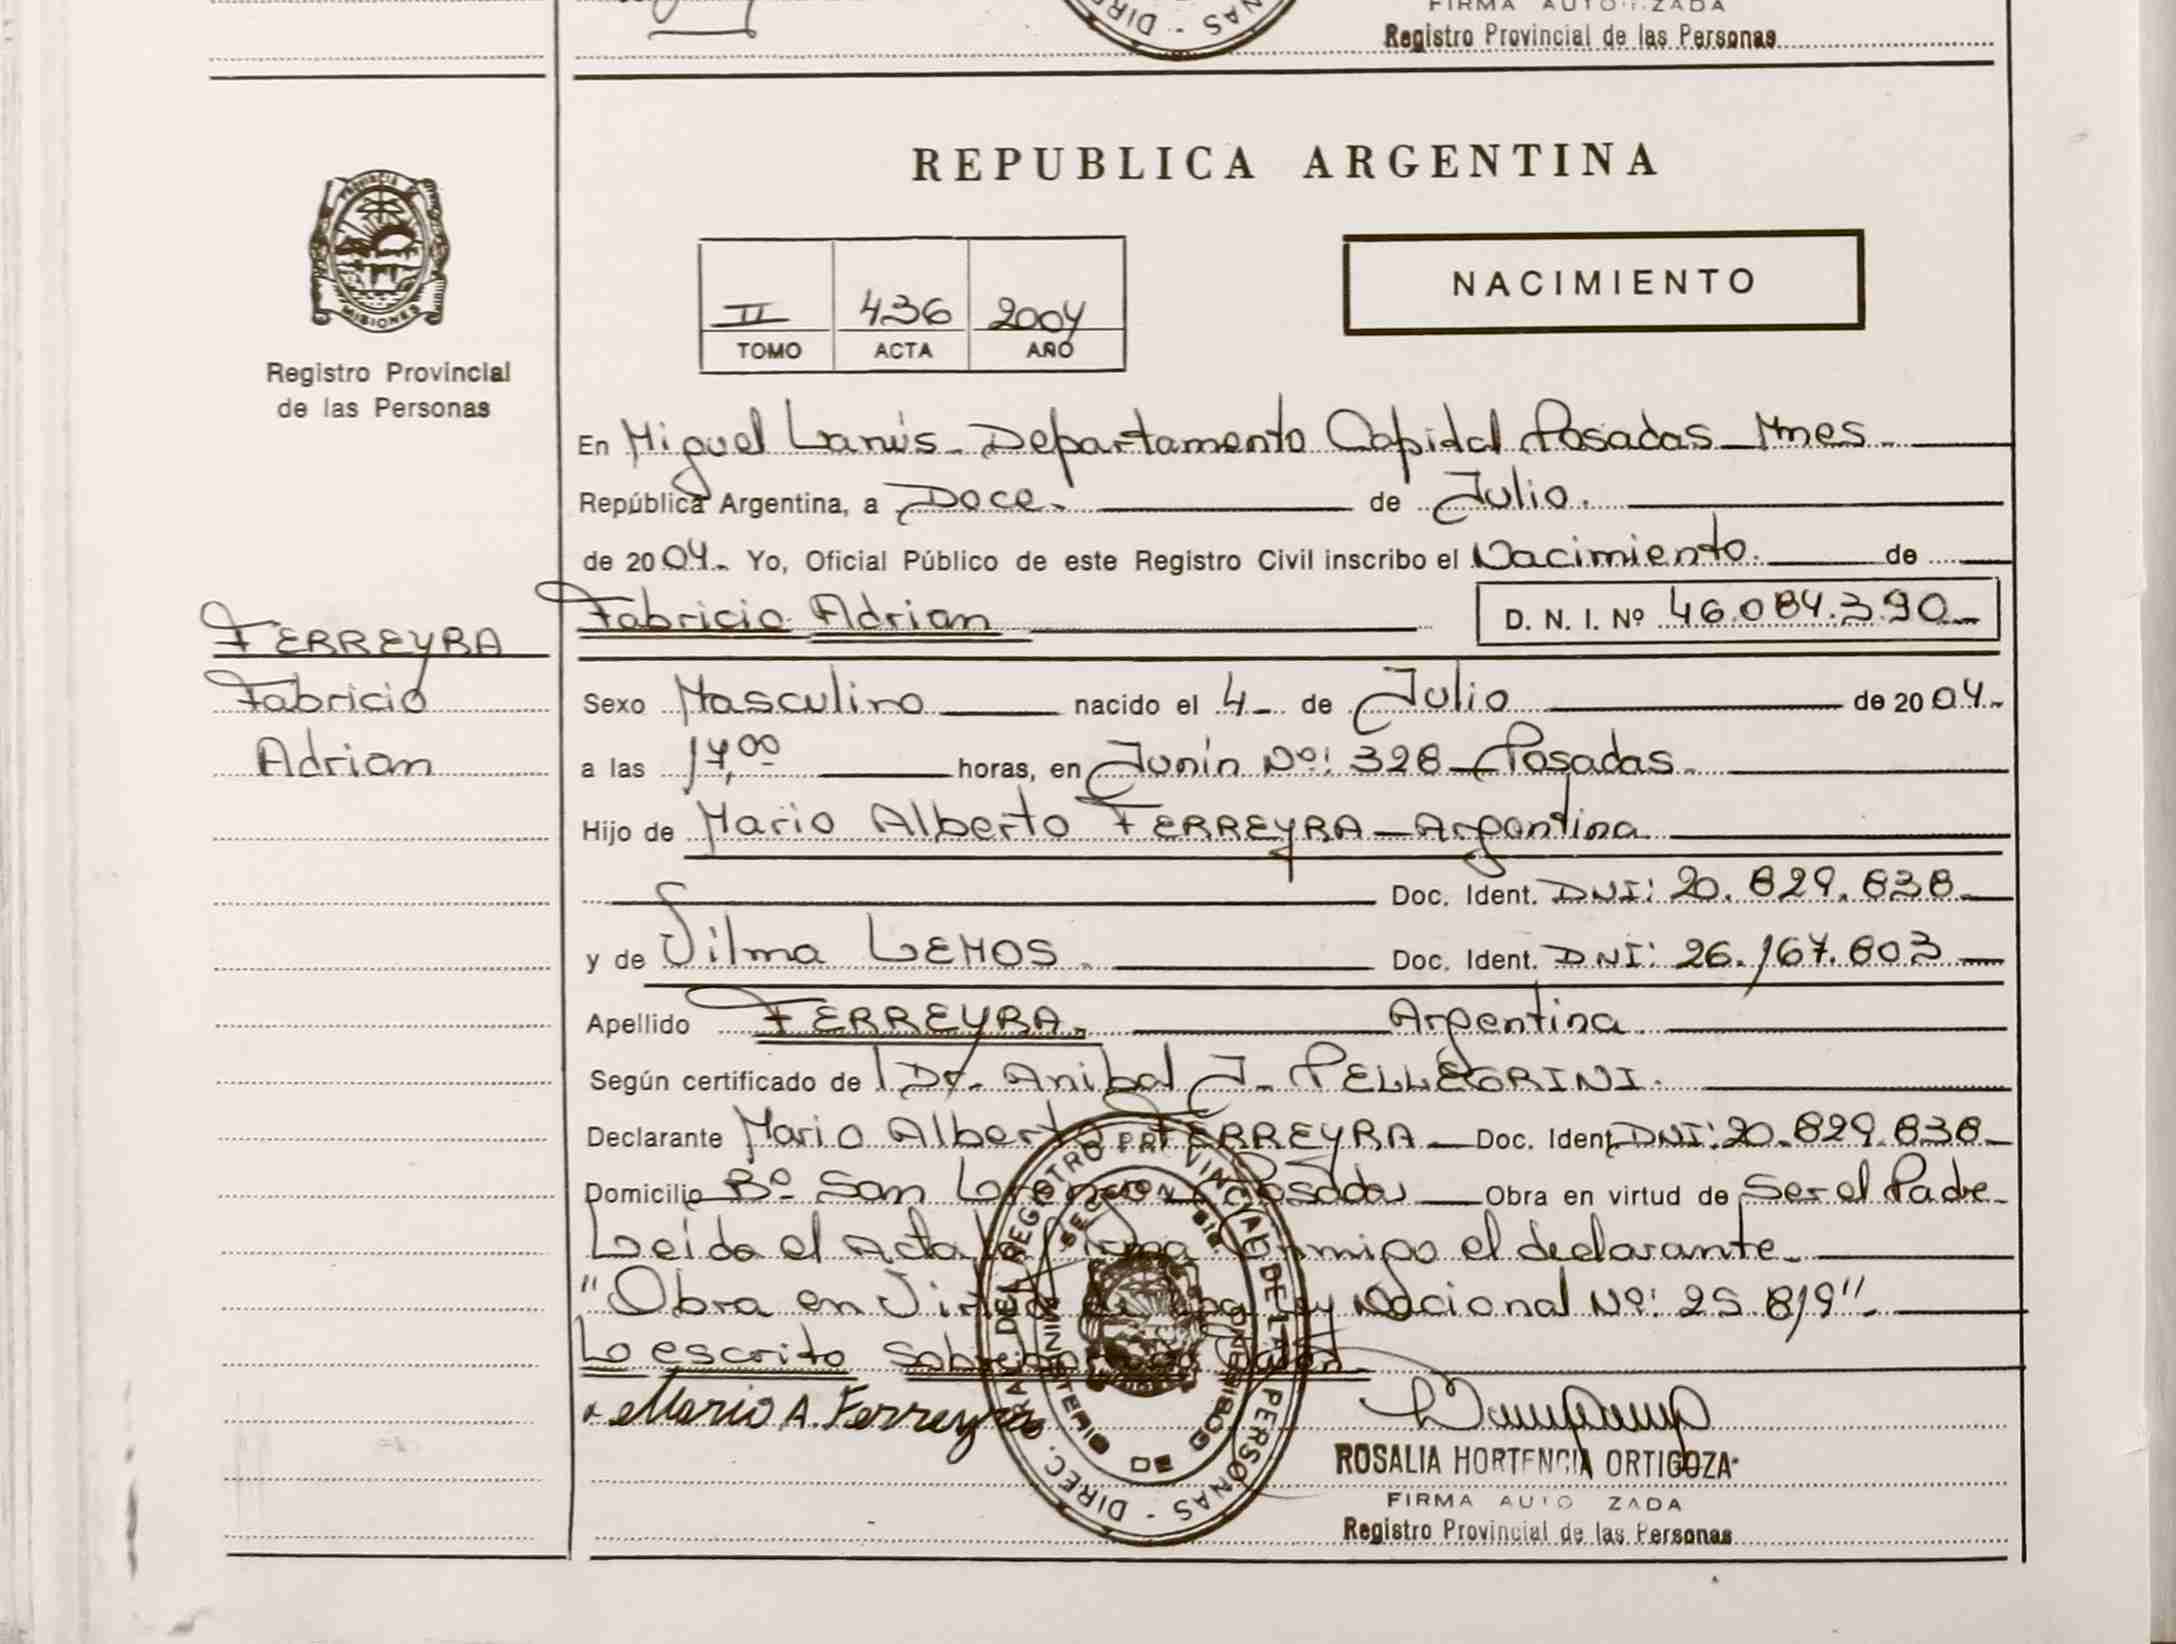 FIRMA AUTORIZADA
Registro Provincial de las Personas
PROVINCIA DE
MISIONES
Registro Provincial
de las Personas
REPUBLICA ARGENTINA
II 436 2004
TOMO ACTA AÑO
NACIMIENTO
En Miguel Lanús - Departamento Capital Posadas - Mnes -
República Argentina, a Doce. de Julio.
de 2004. Yo, Oficial Público de este Registro Civil inscribo el Nacimiento. de
Fabricio Adrian D. N. I. Nº 46.084.390
FERREYRA
Fabricio
Adrian
Sexo Masculino nacido el 4 de Julio de 2004.
a las 17,00 horas, en Junín Nº: 328 - Posadas
Hijo de Mario Alberto FERREYRA - Argentina
Doc. Ident. DNI: 20.829.838
y de Vilma LEMOS Doc. Ident. DNI: 26.167.803
Apellido FERREYRA. Argentina
Según certificado de Dr. Anibal J. PELLEGRINI.
Declarante Mario Alberto FERREYRA - Doc. Ident. DNI: 20.829.838
Domicilio Bº San Lorenzo Posadas Obra en virtud de Ser el Padre
Leída el Acta la firma conmigo el declarante
"Obra en Virtud de la Ley Nacional Nº: 25.819"
Lo escrito sobre
Mario A. Ferreyra
DIREC. GRAL. DEL REGISTRO PROVINCIAL DE LAS PERSONAS
MINISTERIO DE GOBIERNO
ROSALIA HORTENCIA ORTIGOZA
FIRMA AUTO ZADA
Registro Provincial de las Personas